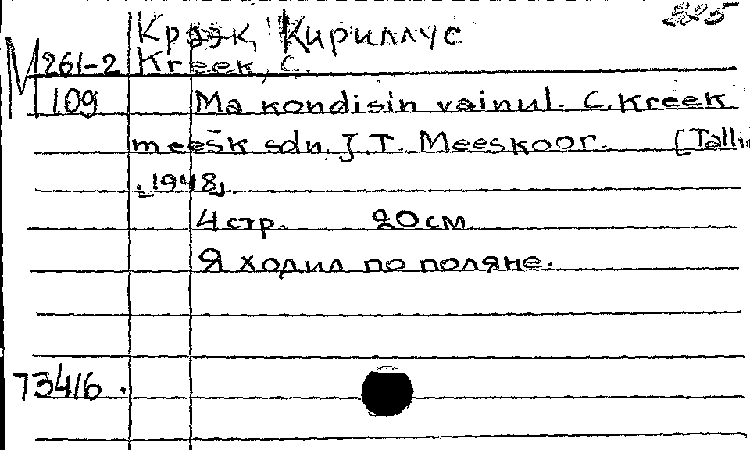 Крээк, Кириллус
М 261-2 Kreek, C.
109 Ma kondisin vainul. C. Kreek
meesk sdn. J.T. Meeskoor. [Tallin
1948]
4 стр. 20 см
Я ходил по поляне.
73416.